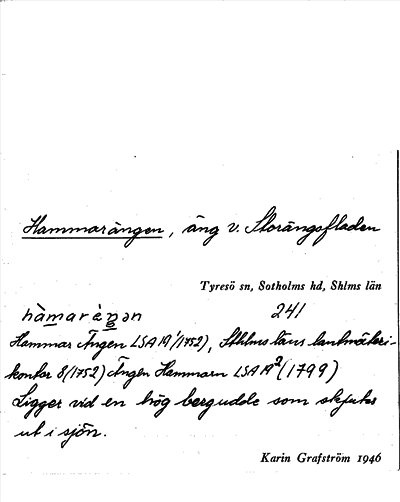 Hammarängen, äng v. Storängsfladen
Tyresö sn, Sotholms hd, Shlms län
hàmaràŋən 241
Hammar Ängen LSA 19¹(1752), Sthlms läns lantmäteri-
kontor 8(1752) Ängen Hammarn LSA 19²(1799)
Ligger vid en hög bergudde som skjuter
ut i sjön.
Karin Grafström 1946